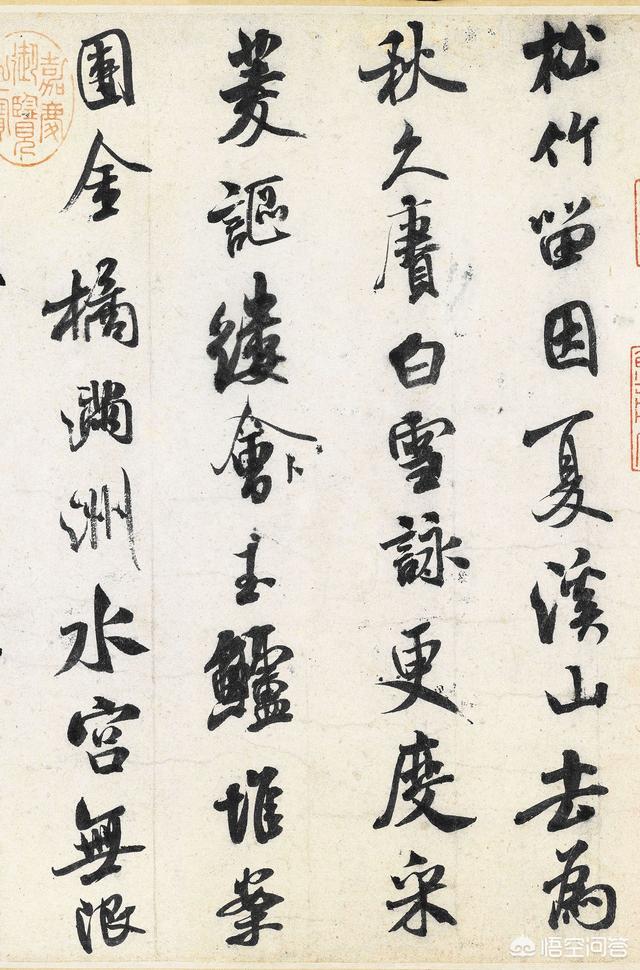 松竹留因夏溪山去為
秋久賡白雪詠更度采
菱謳縷會玉鱸堆案
團金橘滿洲水宮無限
嘉慶
御覽
悟空问答